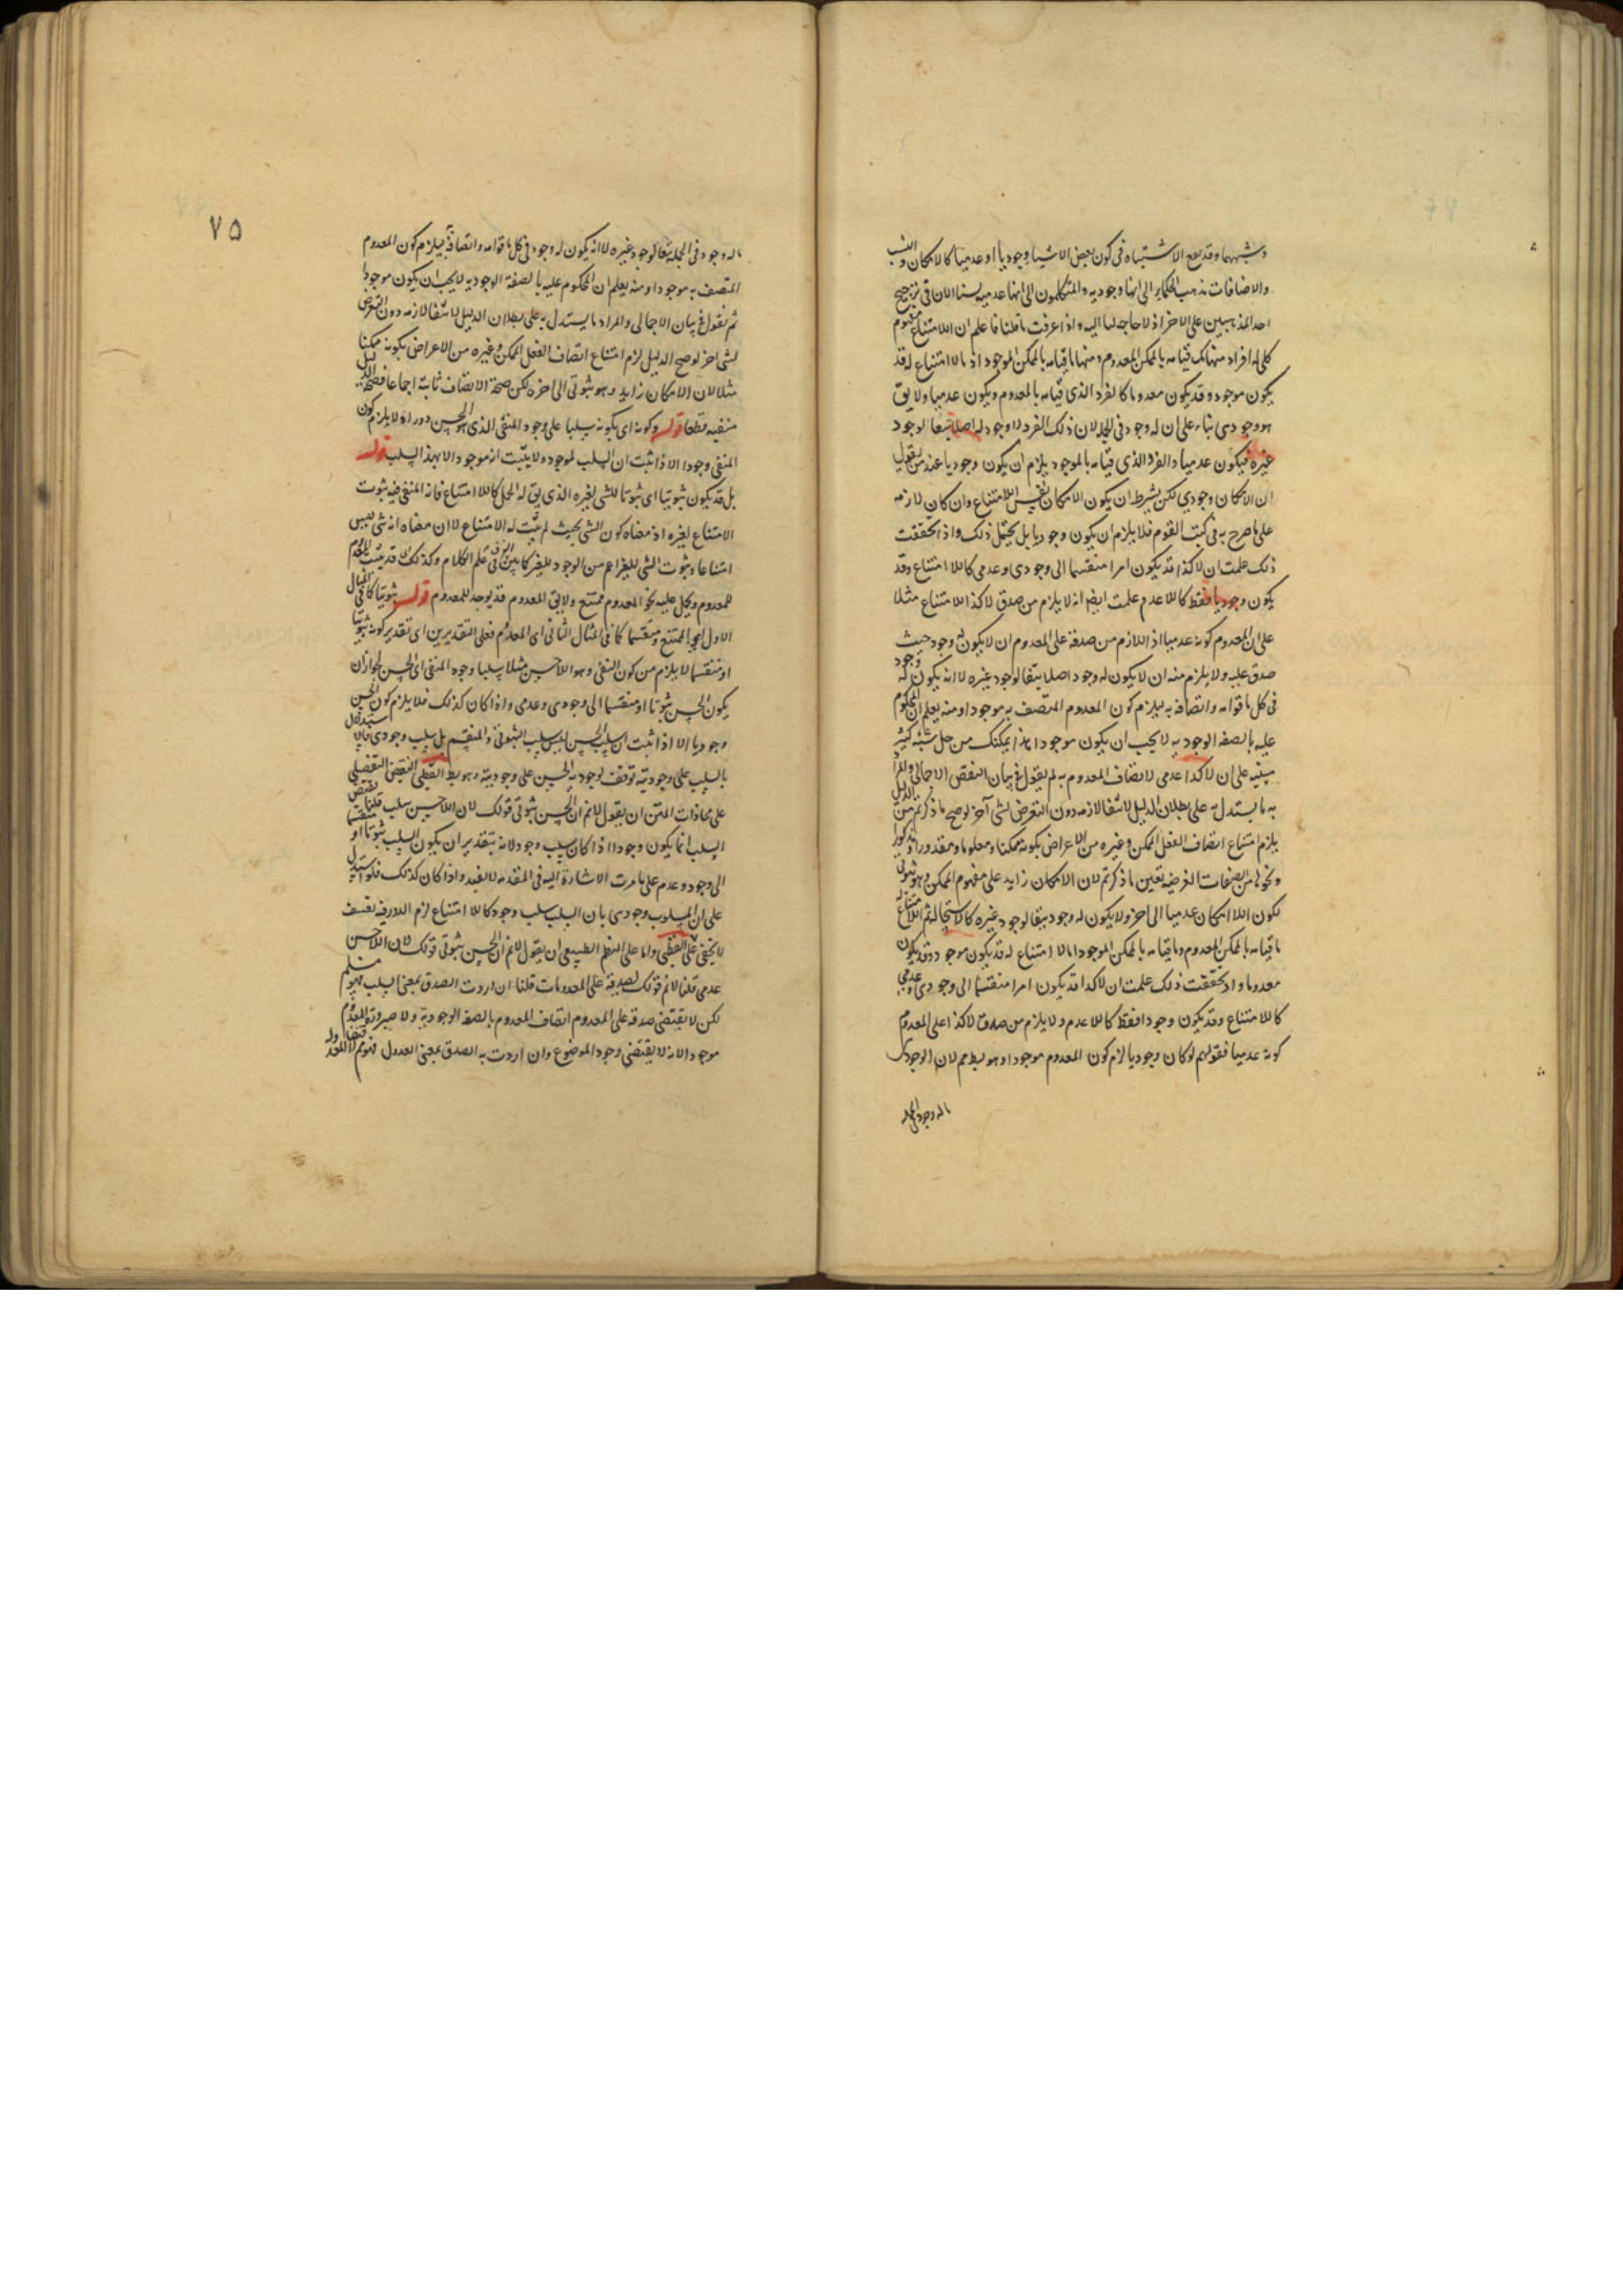 وشبههما وقد يقع الاشتباه فى كون بعض الاشياء وجوديا او عدميا كالامكان والنسب
والاضافات فذهب الحكماء الى انها وجوديه والمتكلمون الى انها عدميه لسنا الان فى ترجيح
احد المذهبين على الاخر اذ لا حاجه لنا اليه واذا عرفت ما قلنا فاعلم ان اللاامتناع مفهوم
كلى له افراد منها ما قيامه بالممكن المعدوم ومنها ما قيامه بالممكن الموجود اذ مالا امتناع له قد
يكون موجودا وقد يكون معدوما كالفرد الذى قيامه بالمعدوم ويكون عدميا ولا يق
هو وجودى بناء على ان له وجود فى الجملة لان ذلك الفرد لا وجود له اصلا تبعا لوجود
غيره فيكون عدميا والفرد الذى قيامه بالموجود يلزم ان يكون وجوديا عند من يقول
ان الامكان وجودي لكن بشرط ان يكون الامكان نفس اللاامتناع وان كان لازمه
على ما صرح به فى كتب القوم فلا يلزم ان يكون وجوديا بل يحتمل ذلك واذا تحققت
ذلك علمت ان لا كذا قد يكون امرا منقسما الى وجودى وعدمى كاللاامتناع وقد
يكون وجوديا فقط كاللاعدم وعلمت ايضا انه لا يلزم من صدق لا كذا اللاامتناع مثلا
على المعدوم كونه عدميا اذ اللازم من صدقه على المعدوم ان لا يكون له وجود حيث
صدق عليه ولا يلزم منه ان لا يكون له وجود اصلا تبعا لوجود غيره لا انه يكون له وجود
فى كل ما قوامه واتصافه به يلزم كون المعدوم المتصف به موجودا ومنه يعلم ان المحكوم
عليه بالصفه الوجوديه لا يجب ان يكون موجودا هذا يمكنك من حل شبه كثيره
مبنيه على ان لا كذا عدمى لاتصاف المعدوم به ثم يقول فى بيان النقض الاجمالى والمراد
به ما يستدل به على بطلان الدليل لانتفاء لازمه دون التعرض لشى آخر لو صح ما ذكرتم من الدليل
يلزم امتناع اتصاف الفعل الممكن وغيره من الاعراض بكونه ممكنا ومعلوما ومقدورا ومذكورا
ونحوها من الصفات العرضيه بعين ما ذكرتم لان الامكان زايد على مفهوم الممكن وهو ثبوتى
لكون اللاامكان عدميا الى اخره ولا يكون له وجود تبعا لوجود غيره كالاستحالة ثم اللاامتناع له
ما قيامه بالممكن المعدوم وما قيامه بالممكن الموجود اذ مالا امتناع له قد يكون موجودا وقد يكون
معدوما واذ تحققت ذلك علمت ان لا كذا قد يكون امرا منقسما الى وجودى وعدمى
كاللاامتناع وقد يكون وجودا فقط كاللاعدم ولا يلزم من صدق لا كذا على المعدوم
كونه عدميا فقولهم لو كان وجوديا لزم كون المعدوم موجودا وهو بط مم لان الوجودى
ماله وجود فى الجمله
٧٥
ماله وجود فى الجملة تبعا لوجود غيره لا انه يكون له وجود فى كل ما قوامه واتصافه به يلزم كون المعدوم
المتصف به موجودا ومنه يعلم ان المحكوم عليه بالصفة الوجوديه لا يجب ان يكون موجودا
ثم نقول فى بيان الاجمالى والمراد ما يستدل به على بطلان الدليل لانتفاء لازمه دون التعرض
لشى اخر لو صح الدليل لزم امتناع اتصاف الفعل الممكن وغيره من الاعراض بكونه ممكنا
مثلا لان الامكان زايد وهو ثبوتى الى اخره لكن صحة الاتصاف ثابتة اجماعا فصحة الدليل
منفيه قطعا قوله وكونه اى بكونه سلبا على وجود المنفى الذى هو الحسن دور اذ لا يلزم كون
المنفى وجودا الا اذا ثبت ان السلب لموجود ولا يثبت انه موجود الا بهذا السلب قوله
بل قد يكون ثبوتيا اى ثبوتا للشى لغيره الذى يق له المحل كاللاامتناع فانه المنفى فيه ثبوت
الامتناع لغيره اذ معناه كون الشى بحيث لم يثبت له الامتناع لا ان معناه انه شى ليس
امتناعا وثبوت الشى للغير اعم من الوجود للغير كما بين الفرق فى علم الكلام وكذلك قد يثبت المعدوم
للمعدوم ويحمل عليه نحو المعدوم ممتنع ولا يق المعدوم قد يوجد للمعدوم قوله ثبوتيا كما فى المثال
الاول اى الممتنع ومنقسما كما فى المثال الثانى اى المعدوم فعلى التقديرين اى تقدير كونه ثبوتيا
او منقسما لا يلزم من كون النفى وهو اللاحسن مثلا سلبيا وجود المنفى اى الحسن لجواز ان
يكون الحسن ثبوتا او منقسما الى وجودى وعدمى واذا كان كذلك فلا يلزم كون الحسن
وجوديا الا اذا ثبت ان سلب الحسن ليس سلب الثبوتى والمنقسم بل سلب وجودى فالاستدلال
بالسلب على وجوديته توقف لوجوديه الحسن على وجوديته وهو بط القطبى النقض التفصيلى
على محاذات المتن ان يقول لانم ان الحسن ثبوتى قولك لان اللاحسن سلب قلنا نقيض
السلب انما يكون وجودا اذا كان سلب وجود لانه بتقدير ان يكون السلب ثبوتا او منقسما
الى وجود وعدم على ما مرت الاشارة اليه فى المقدمه لا يفيد واذا كان كذلك فلو استدل
على ان المسلوب وجودى بان السلب سلب وجود كاللاامتناع لزم الدور فيه تعسف
لا يخفى على القطبى واما على النظم الطبيعى ان يقول لانم ان الحسن ثبوتى قولك لان اللاحسن
عدمى قلنا لانم قولك لصدقه على المعدومات قلنا ان اردت الصدق بمعنى السلب فهو مسلم
لكن لا يقتضى صدقه على المعدوم اتصاف المعدوم بالصفه الوجوديه ولا صيرورة المعدوم
موجودا لانه لا يقتضى وجود الموضوع وان اردت به الصدق بمعنى العدول فهو مم